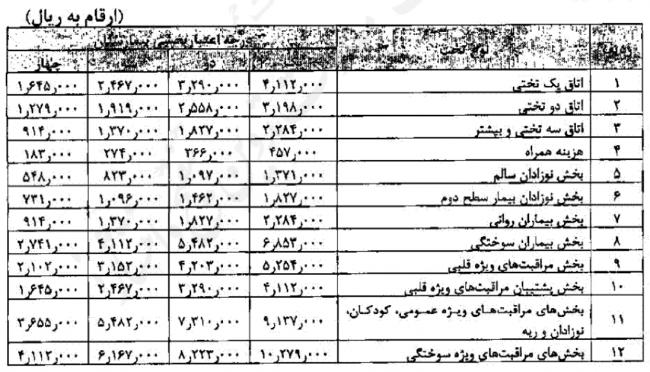 (ارقام به ریال)
ردیف نوع تخت درجه اعتباربخشی بیمارستان
یک دو سه چهار
۱ اتاق یک تختی ۴٫۱۱۲٫۰۰۰ ۳٫۲۹۰٫۰۰۰ ۲٫۴۶۷٫۰۰۰ ۱٫۶۴۵٫۰۰۰
۲ اتاق دو تختی ۳٫۱۹۸٫۰۰۰ ۲٫۵۵۸٫۰۰۰ ۱٫۹۱۹٫۰۰۰ ۱٫۲۷۹٫۰۰۰
۳ اتاق سه تختی و بیشتر ۲٫۲۸۴٫۰۰۰ ۱٫۸۲۷٫۰۰۰ ۱٫۳۷۰٫۰۰۰ ۹۱۴٫۰۰۰
۴ هزینه همراه ۴۵۷٫۰۰۰ ۳۶۶٫۰۰۰ ۲۷۴٫۰۰۰ ۱۸۳٫۰۰۰
۵ بخش نوزادان سالم ۱٫۳۷۱٫۰۰۰ ۱٫۰۹۷٫۰۰۰ ۸۲۳٫۰۰۰ ۵۴۸٫۰۰۰
۶ بخش نوزادان بیمار سطح دوم ۱٫۸۲۷٫۰۰۰ ۱٫۴۶۲٫۰۰۰ ۱٫۰۹۶٫۰۰۰ ۷۳۱٫۰۰۰
۷ بخش بیماران روانی ۲٫۲۸۴٫۰۰۰ ۱٫۸۲۷٫۰۰۰ ۱٫۳۷۰٫۰۰۰ ۹۱۴٫۰۰۰
۸ بخش بیماران سوختگی ۶٫۸۵۳٫۰۰۰ ۵٫۴۸۲٫۰۰۰ ۴٫۱۱۲٫۰۰۰ ۲٫۷۴۱٫۰۰۰
۹ بخش مراقبت‌های ویژه قلبی ۵٫۲۵۴٫۰۰۰ ۴٫۲۰۳٫۰۰۰ ۳٫۱۵۲٫۰۰۰ ۲٫۱۰۲٫۰۰۰
۱۰ بخش پشتیبان مراقبت‌های ویژه قلبی ۴٫۱۱۲٫۰۰۰ ۳٫۲۹۰٫۰۰۰ ۲٫۴۶۷٫۰۰۰ ۱٫۶۴۵٫۰۰۰
۱۱ بخش‌های مراقبت‌های ویژه عمومی، کودکان،
نوزادان و ریه ۹٫۱۳۷٫۰۰۰ ۷٫۳۱۰٫۰۰۰ ۵٫۴۸۲٫۰۰۰ ۳٫۶۵۵٫۰۰۰
۱۲ بخش‌های مراقبت‌های ویژه سوختگی ۱۰٫۲۷۹٫۰۰۰ ۸٫۲۲۳٫۰۰۰ ۶٫۱۶۷٫۰۰۰ ۴٫۱۱۲٫۰۰۰